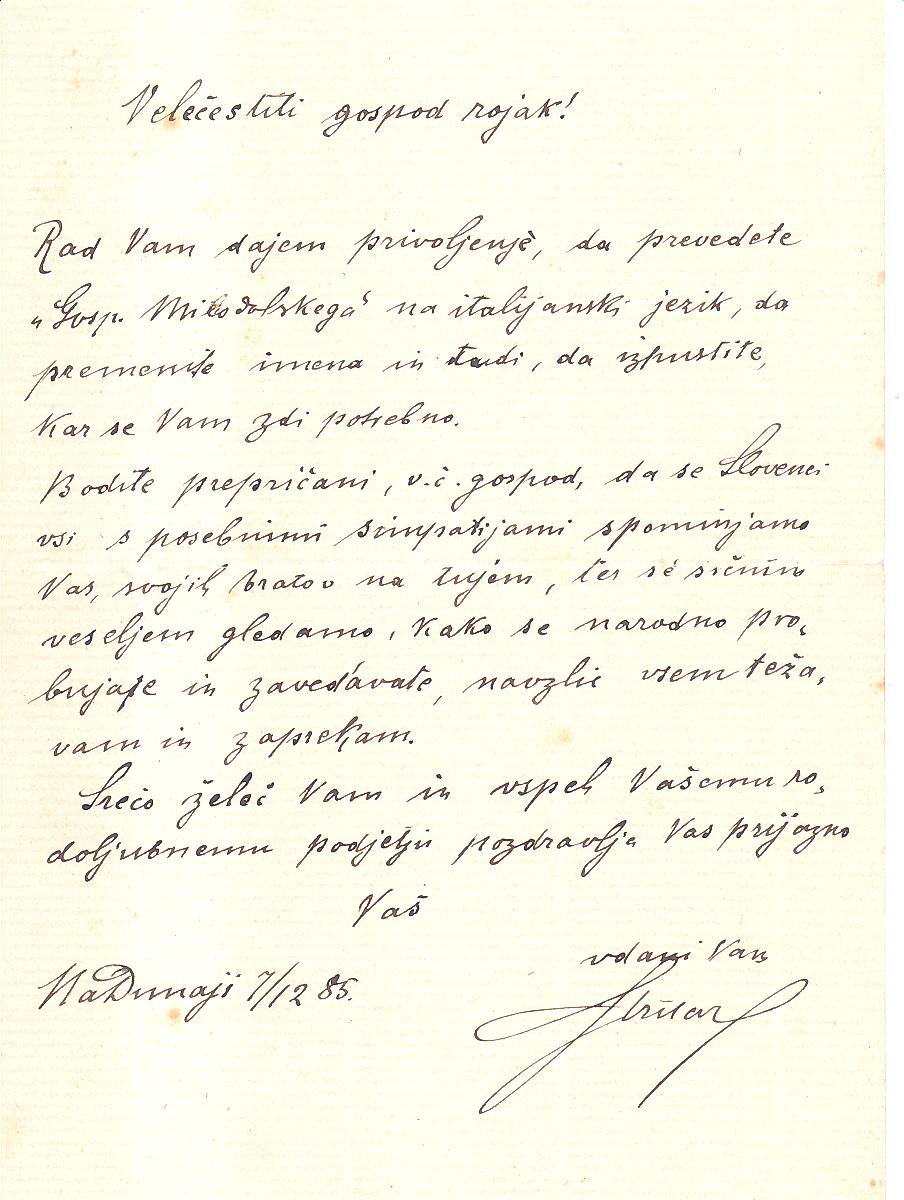 Velečestiti gospod rojak!
Rad Vam dajem privoljenje, da prevedete
„Gosp. Mirodolskega“ na italijanski jezik, da
premenite imena in tudi, da izpustite,
Kar se Vam zdi potrebno.
Bodite prepričani, v.č. gospod, da se Slovenci
vsi s posebnimi simpatijami spominjamo
Vas, svojih bratov na tujem, ter sè srčnim
veseljem gledamo, Kako se narodno pro„
bujate in zavedavate, navzlic vsem teža„
vam in zaprekam.
Srečo želeč Vam in vspeh Vašemu ro„
doljubnemu podjetju pozdravlja Vas prijazno
Vaš
vdani Vam
Na Dunaji 7/12 85.
Stritar